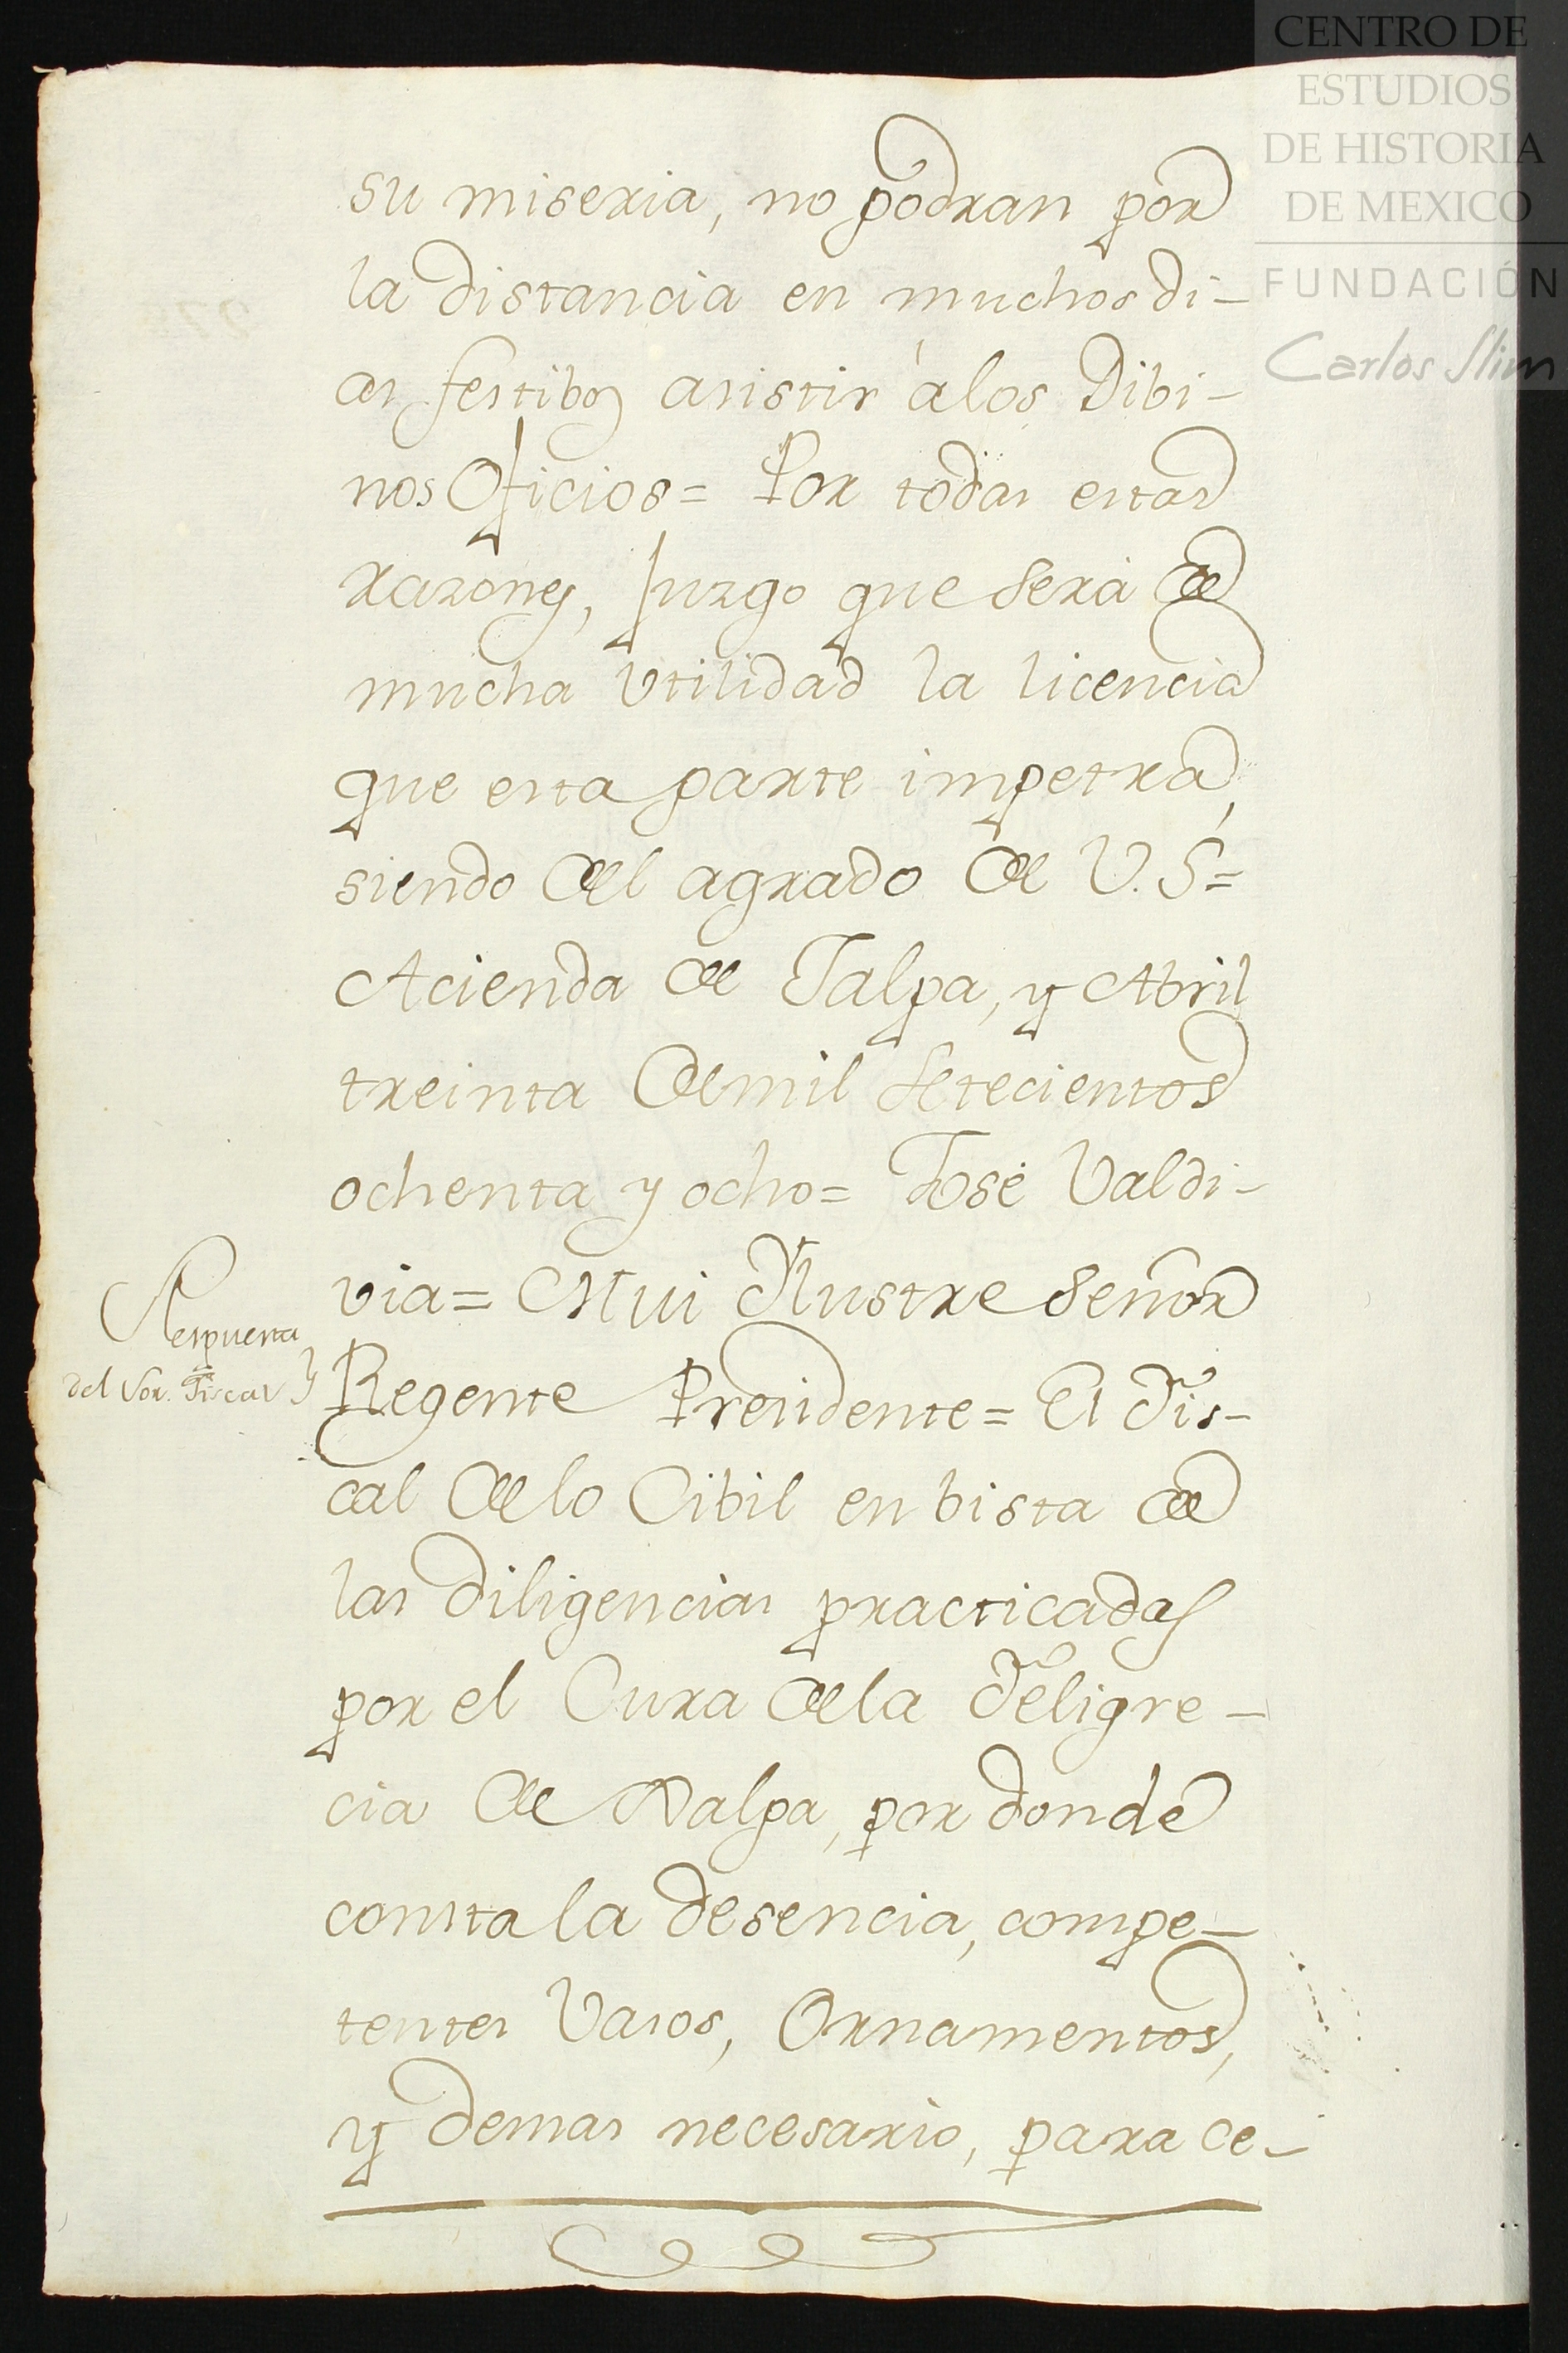 CENTRO DE
ESTUDIOS
DE HISTORIA
DE MEXICO
FUNDACIÓN
Carlos Slim
su miseria, no podran por
la distancia en muchos di-
as festibos asistir á los Dibi-
nos Oficios= Por todas estas
razones, Juzgo que será de
mucha utilidad la licencia
que esta parte impetra,
siendo del agrado de V.S=
Acienda de Talpa, y Abril
treinta de mil Setecientos
ochenta y ocho= José Valdi-
via= Mui Ylustre Señor
Respuesta
del Sor. Fiscal
Regente Presidente= El Fis-
cal de lo Cibil en bista de
las diligencias practicadas
por el Cura de la Feligre-
cia de Nalpa, por donde
consta la desencia, compe-
tentes Vasos, Ornamentos,
y demas necesario, para ce-